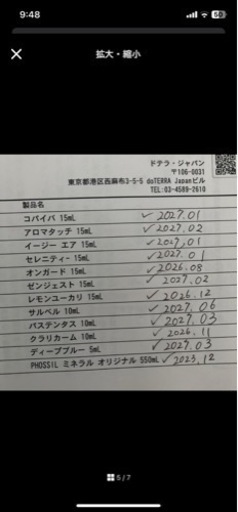 9:48
50
拡大・縮小
ドテラ・ジャパン
〒106-0031
東京都港区西麻布3-5-5 doTERRA Japanビル
TEL:03-4589-2610
製品名
コパイバ 15mL ✓2027.01
アロマタッチ 15mL ✓2027.02
イージー エア 15mL ✓2027.01
セレニティー 15mL ✓2027.01
オンガード 15mL ✓2026.08
ゼンジェスト 15mL ✓2027.02
レモンユーカリ 15mL ✓2026.12
サルベル 10mL ✓2027.06
パステンタス 10mL ✓2027.03
クラリカーム 10mL ✓2026.11
ディープブルー 5mL ✓2027.03
PHOSSIL ミネラル オリジナル 550mL ✓2025.12
5/7